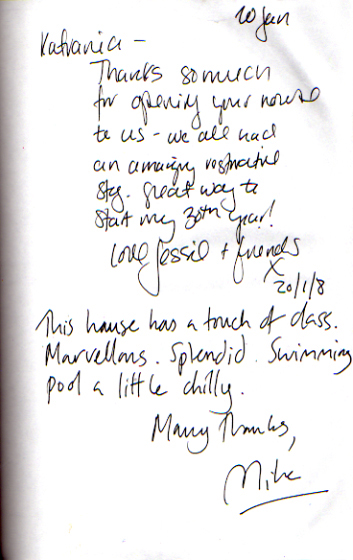 20 Jan
Katrania –
Thanks so much
for opening your house
to us - we all had
an amazing restorative
stay. Great way to
start my 30th year!
Love Jessie + friends
X
20/1/8
This house has a touch of class.
Marvellous. Splendid. Swimming
pool a little chilly.
Many Thanks,
Mike